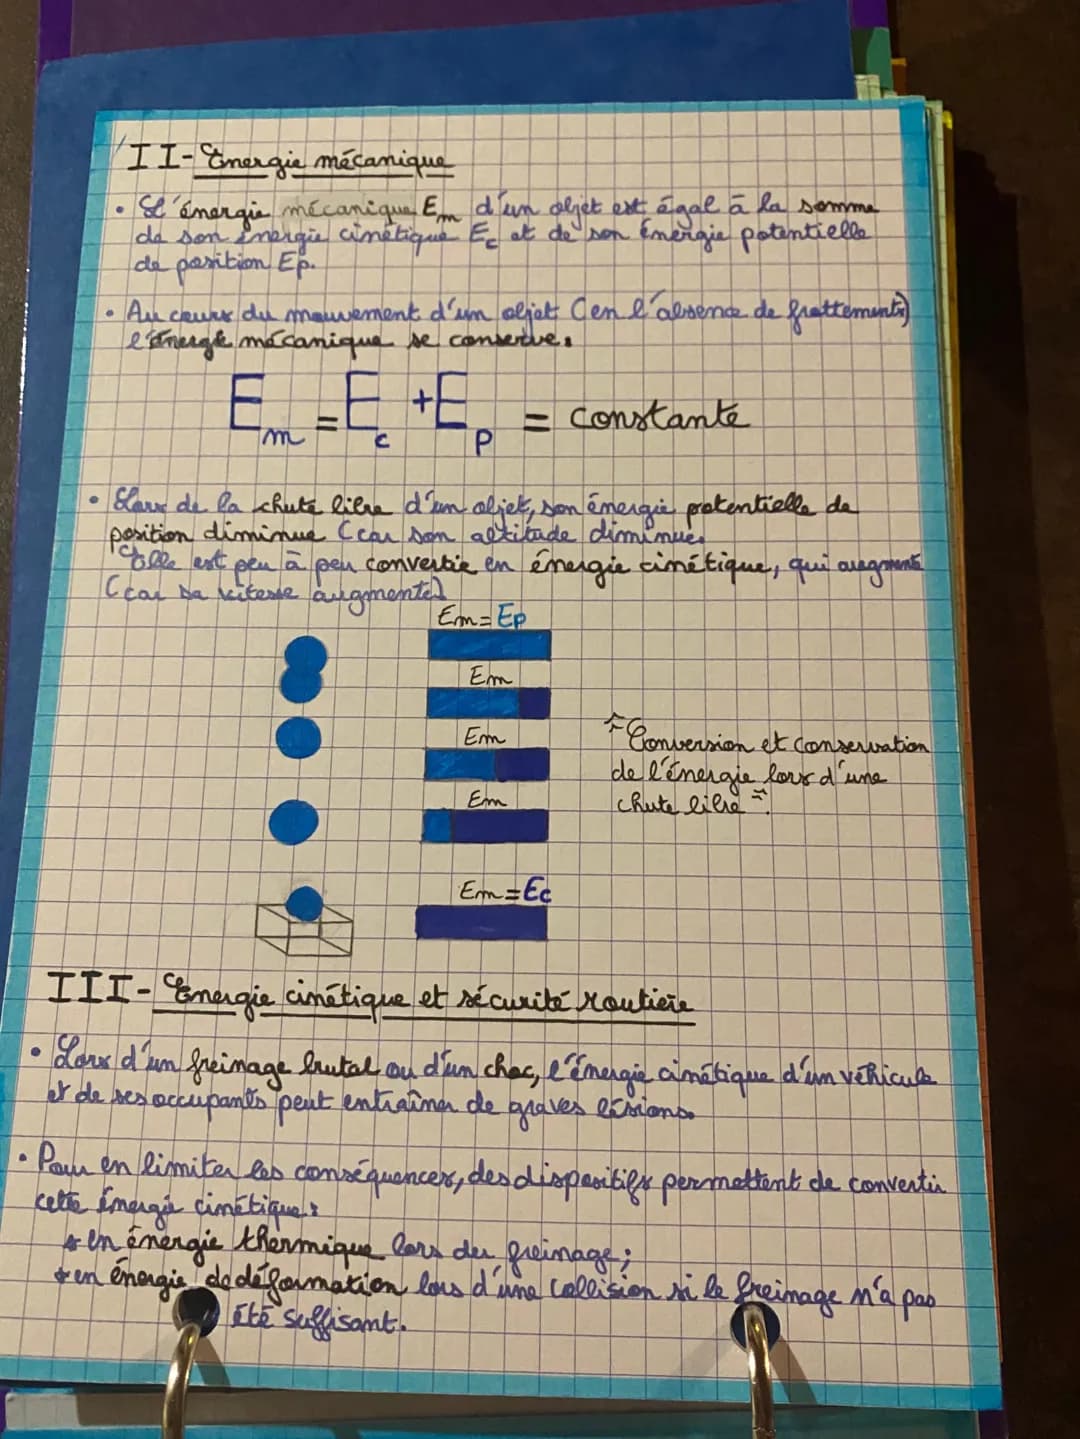 II- Energie mécanique
• L'énergie mécanique Em d'un objet est égal à la somme
de son énergie cinétique Ec et de son énergie potentielle
de position Ep.
• Au cours du mouvement d'un objet (en l'absence de frottements)
l'énergie mécanique se conserve.
Em = Ec + Ep = constante
• Lors de la chute libre d'un objet, son énergie potentielle de
position diminue (car son altitude diminue.
Elle est peu à peu convertie en énergie cinétique, qui augmente
(car sa vitesse augmente)
Em = Ep
Em
Em
Em
Em = Ec
"Conversion et conservation
de l'énergie lors d'une
chute libre".
III- Energie cinétique et sécurité routière
• Lors d'un freinage brutal ou d'un choc, l'énergie cinétique d'un véhicule
et de ses occupants peut entraîner de graves lésions.
• Pour en limiter les conséquences, des dispositifs permettent de convertir
cette énergie cinétique:
* en énergie thermique lors du freinage;
* en énergie de déformation lors d'une collision si le freinage n'a pas
été suffisant.